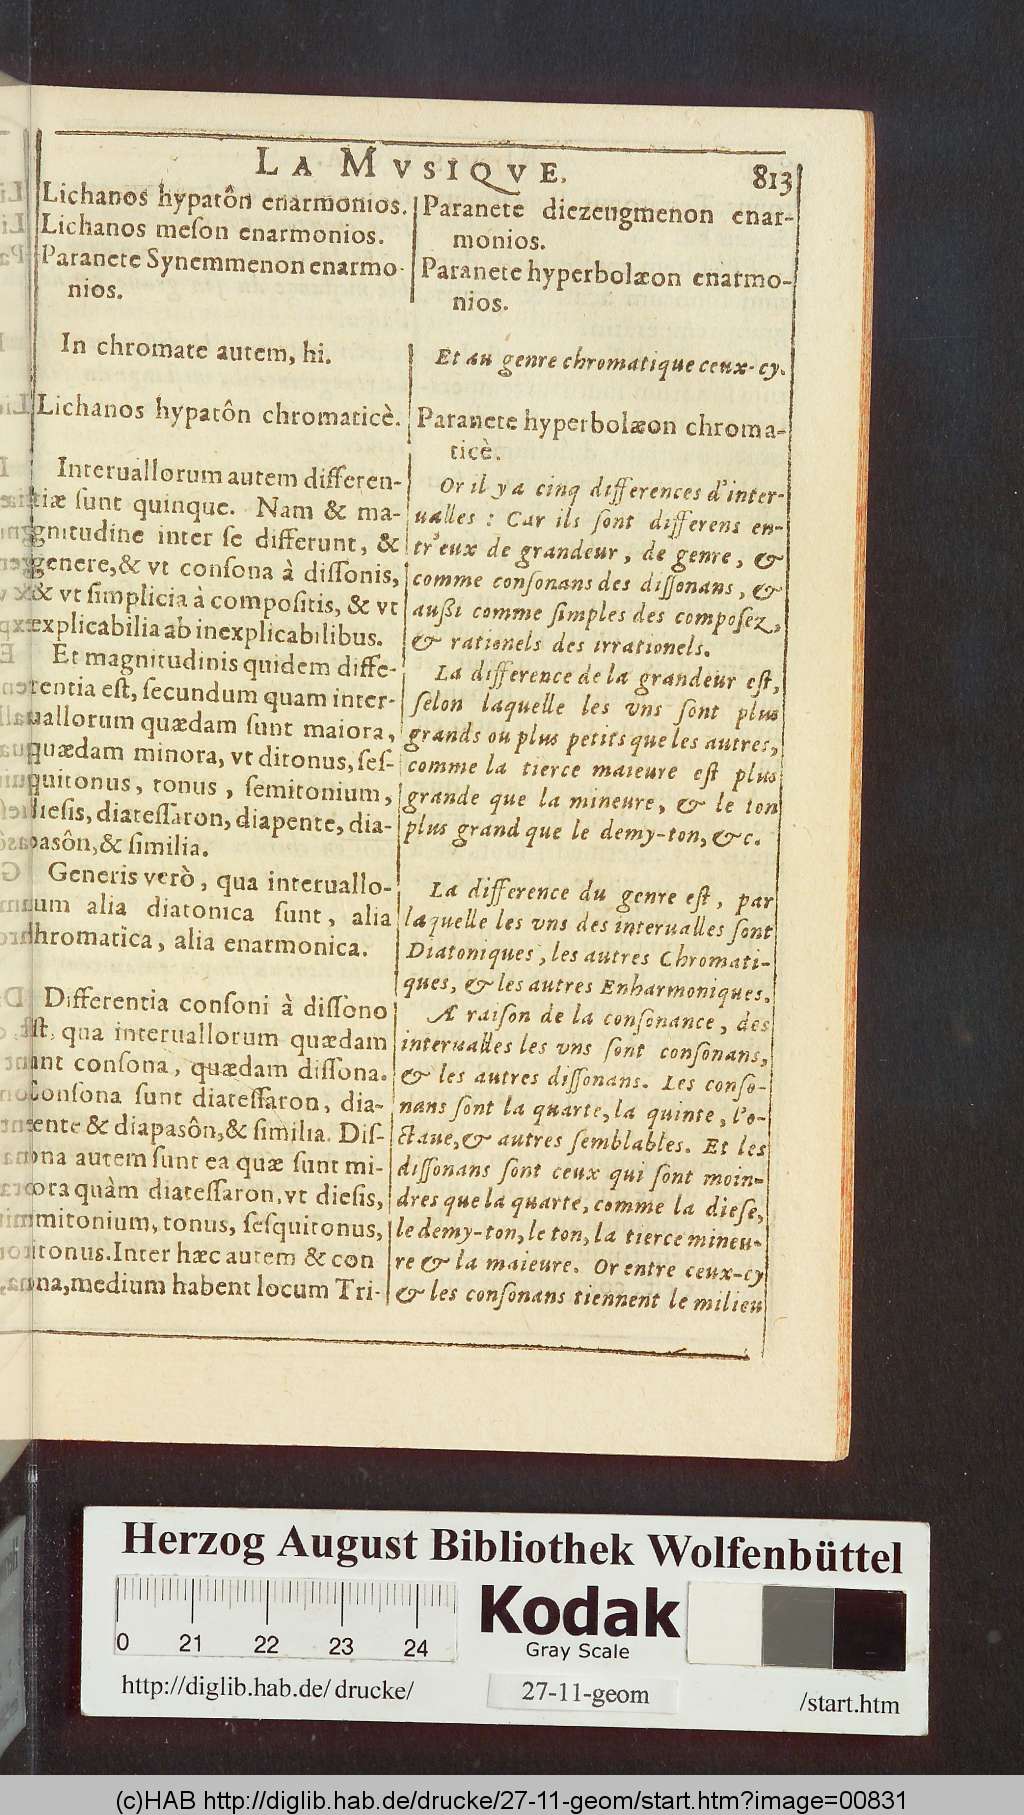 LA MVSIQVE.
813
Lichanos hypatôn enarmonios.
Lichanos meson enarmonios.
Paranete Synemmenon enarmo-
nios.
Paranete diezeugmenon enar-
monios.
Paranete hyperbolæon enarmo-
nios.
In chromate autem, hi.
Et au genre chromatique ceux-cy.
Lichanos hypatôn chromaticè.
Paranete hyperbolæon chroma-
ticè.
Interuallorum autem differen-
tiæ sunt quinque. Nam & ma-
gnitudine inter se differunt, &
genere, & vt consona à dissonis,
& vt simplicia à compositis, & vt
explicabilia ab inexplicabilibus.
Et magnitudinis quidem diffe-
rentia est, secundum quam inter-
uallorum quædam sunt maiora,
quædam minora, vt ditonus, ses-
quitonus, tonus, semitonium,
diesis, diatessaron, diapente, dia-
pasôn, & similia.
Generis verò, qua interuallo-
rum alia diatonica sunt, alia
chromatica, alia enarmonica.
Differentia consoni à dissono
est, qua interuallorum quædam
sunt consona, quædam dissona.
Consona sunt diatessaron, dia-
pente & diapasôn, & similia. Dis-
sona autem sunt ea quæ sunt mi-
nora quàm diatessaron, vt diesis,
semitonium, tonus, sesquitonus,
ditonus. Inter hæc autem & con
sona, medium habent locum Tri-
Or il y a cinq differences d'inter-
ualles : Car ils sont differens en-
tr'eux de grandeur, de genre, &
comme consonans des dissonans, &
außi comme simples des composez,
& rationels des irrationels.
La difference de la grandeur est,
selon laquelle les vns sont plus
grands ou plus petits que les autres,
comme la tierce maieure est plus
grande que la mineure, & le ton
plus grand que le demy-ton, & c.
La difference du genre est, par
laquelle les vns des interualles sont
Diatoniques, les autres Chromati-
ques, & les autres Enharmoniques.
A raison de la consonance, des
interualles les vns sont consonans,
& les autres dissonans. Les conso-
nans sont la quarte, la quinte, l'o-
ctaue, & autres semblables. Et les
dissonans sont ceux qui sont moin-
dres que la quarte, comme la diese,
le demy-ton, le ton, la tierce mineu-
re & la maieure. Or entre ceux-cy
& les consonans tiennent le milieu
Herzog August Bibliothek Wolfenbüttel
0 21 22 23 24
Kodak
Gray Scale
http://diglib.hab.de/drucke/
27-11-geom
/start.htm
(c)HAB http://diglib.hab.de/drucke/27-11-geom/start.htm?image=00831